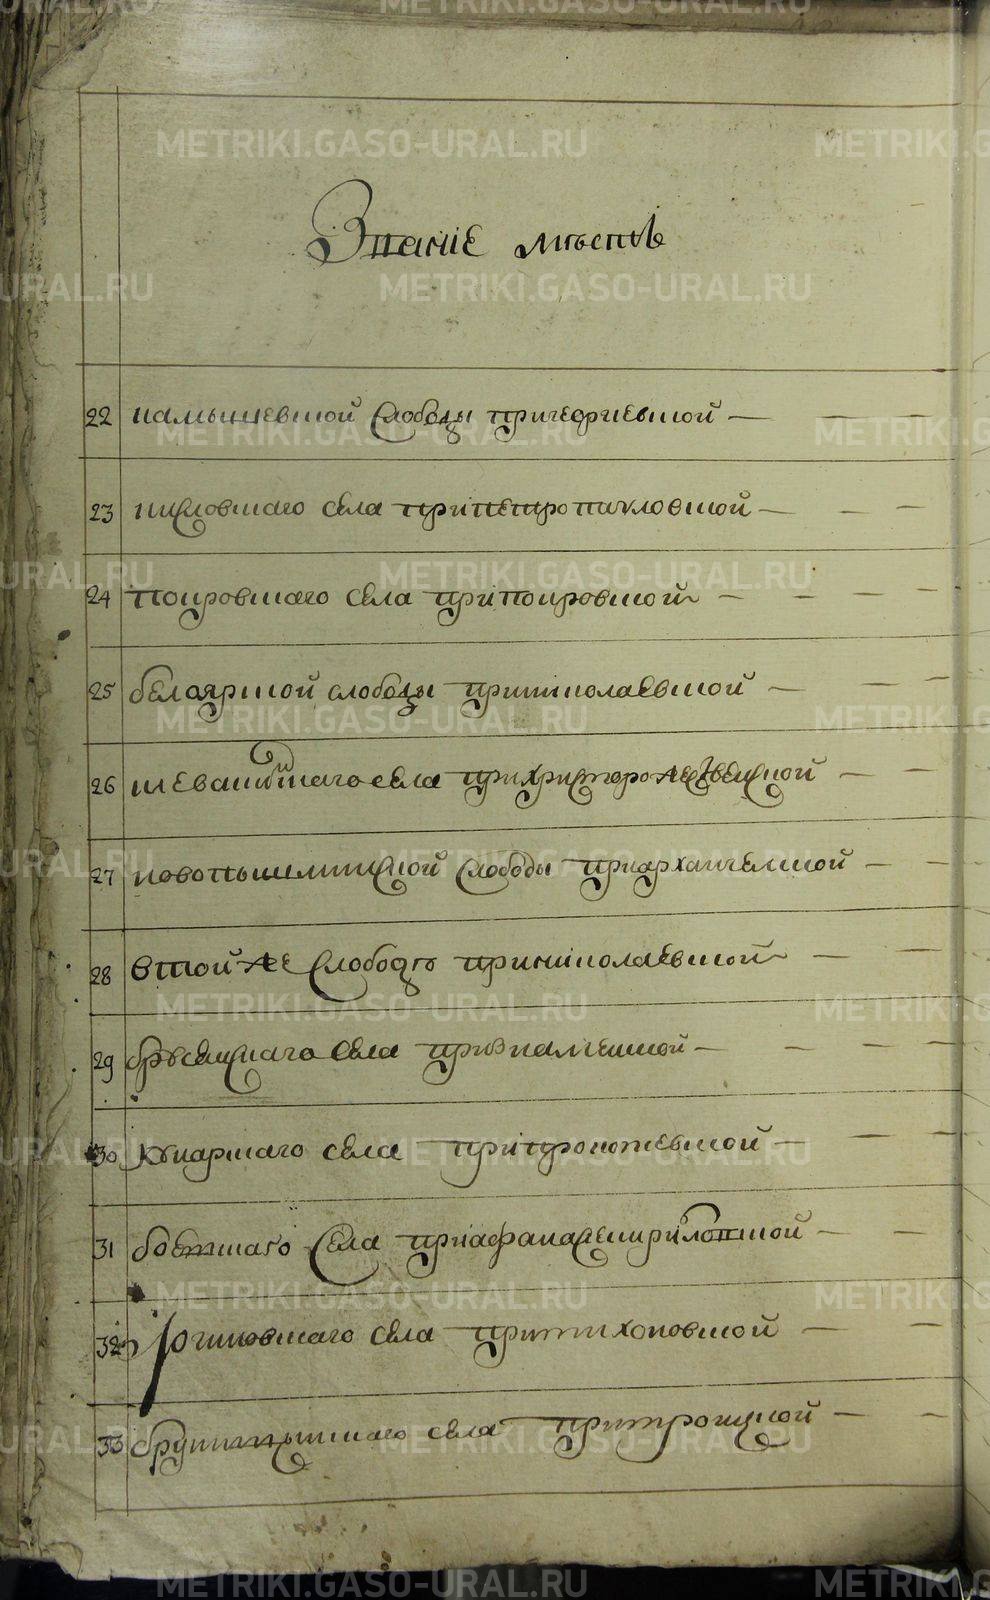 METRIKI.GASO-URAL.RU
Званіе мѣстъ
22 камышевской слободы пригеоргиевской
23 кисловскаго села припетропавловской
24 покровскаго села припокровской
25 белоярской слободы приниколаевской
26 щевакишскаго села прихристорождественской
27 новопышминской слободы приархангелской
28 втойже слободѣ приниколаевской
29 села призnаменской
30 кунарскаго села припрокопьевской
31 села приафанасекириловской
32 юшковскаго села притихоновской
33 села притроицкой